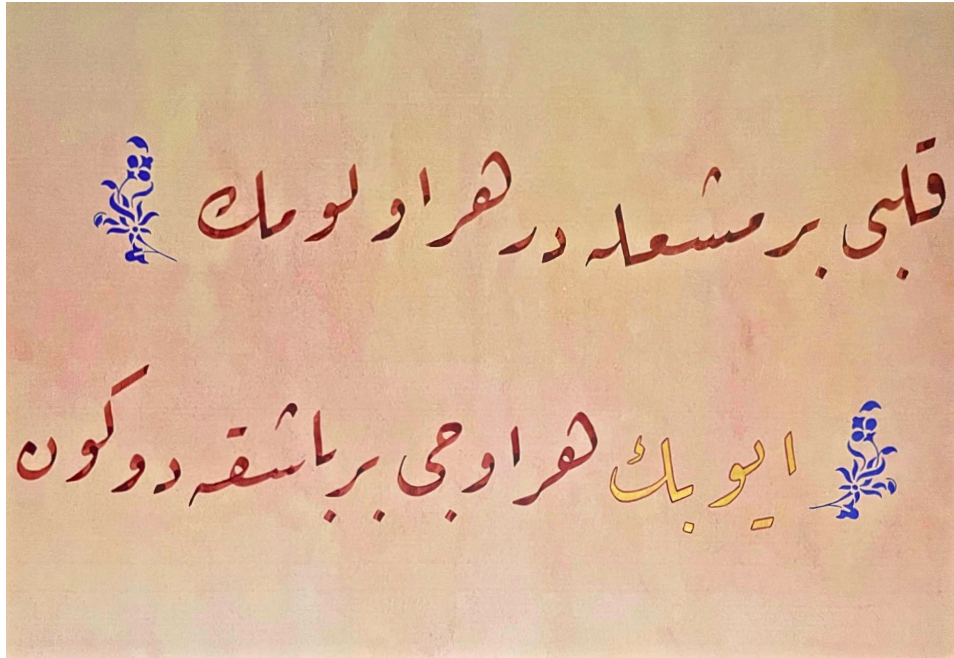 قلبی بر مشعله در هر اولومك
ایوبك هر اوجی بر باشقه دوكون